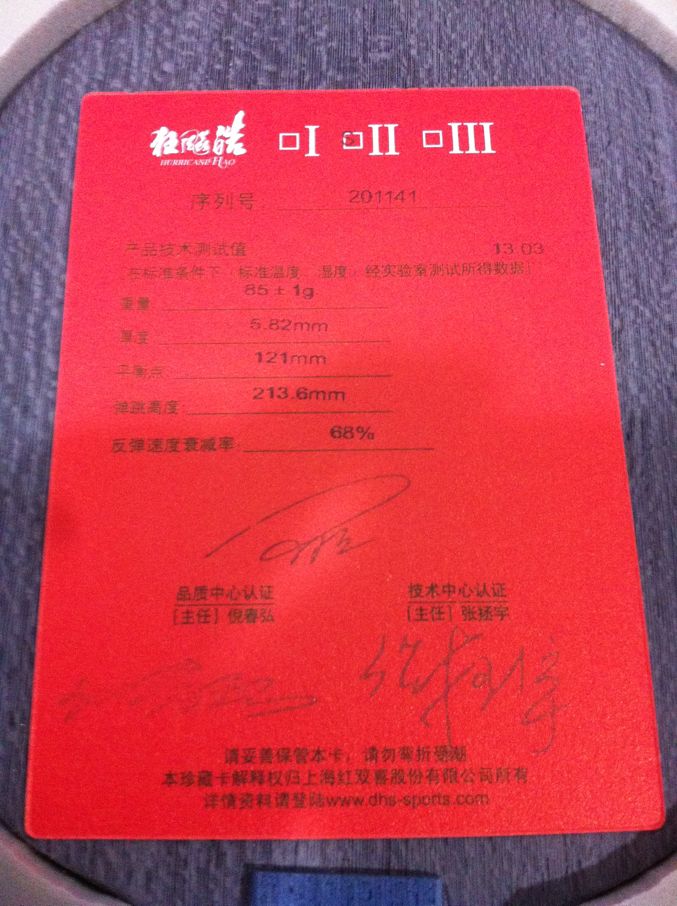 狂飚皓 □I □II □III
HURRICANE HAO
序列号 201141
产品技术测试值 13.03
[在标准条件下（标准温度、湿度）经实验室测试所得数据]
重量 85±1g
厚度 5.82mm
平衡点 121mm
弹跳高度 213.6mm
反弹速度衰减率 68%
品质中心认证 技术中心认证
[主任] 倪春弘 [主任] 张拯宇
请妥善保管本卡，请勿弯折受潮
本珍藏卡解释权归上海红双喜股份有限公司所有
详情资料请登陆www.dhs-sports.com